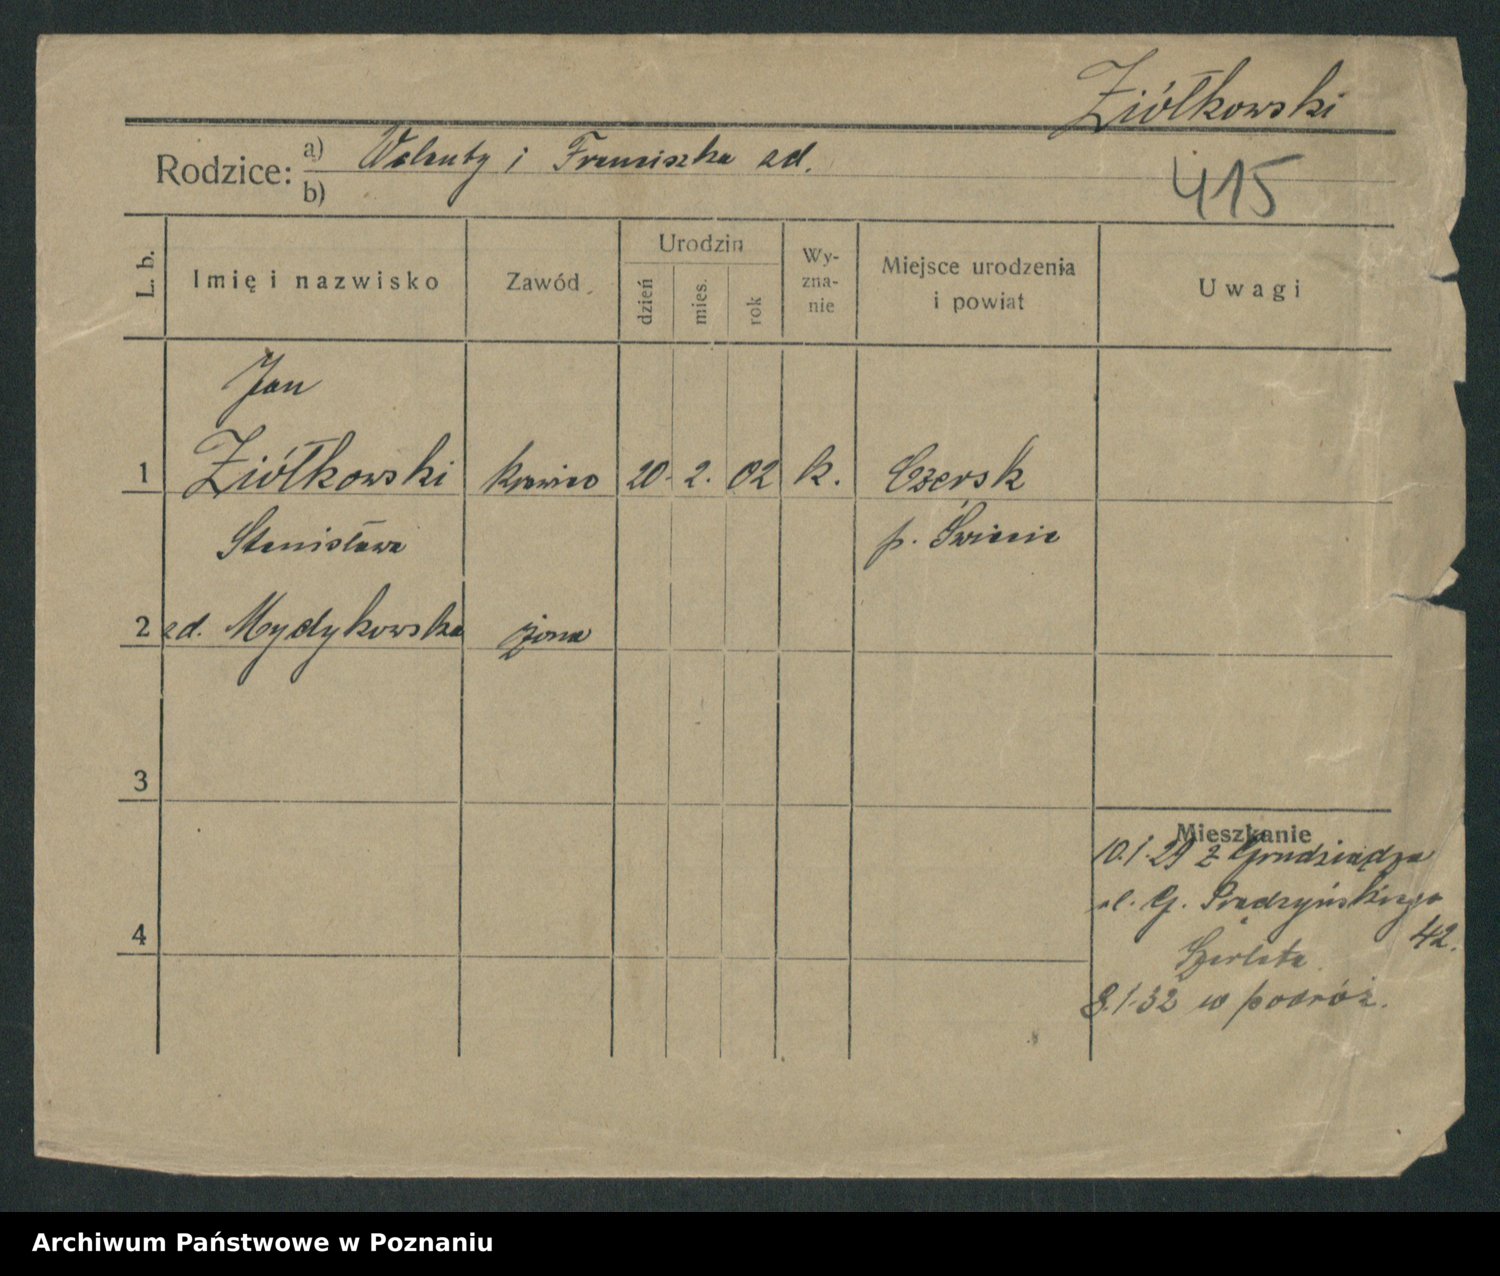 Ziółkowski
Rodzice: a) Walenty i Franciszka zd.
b)
415
L. b.
Imię i nazwisko
Zawód
Urodzin
dzień
mies.
rok
Wy-
zna-
nie
Miejsce urodzenia
i powiat
Uwagi
Jan
1 Ziółkowski krawiec 20. 2. 02 k. Czersk
Stanisława p. Świecie
2 zd. Mydykowska żona
3
Mieszkanie
10.1.29 z Grudziądza
ul. G. Prądzyńskiego
42.
4
8.1.32 w podróż.
Archiwum Państwowe w Poznaniu